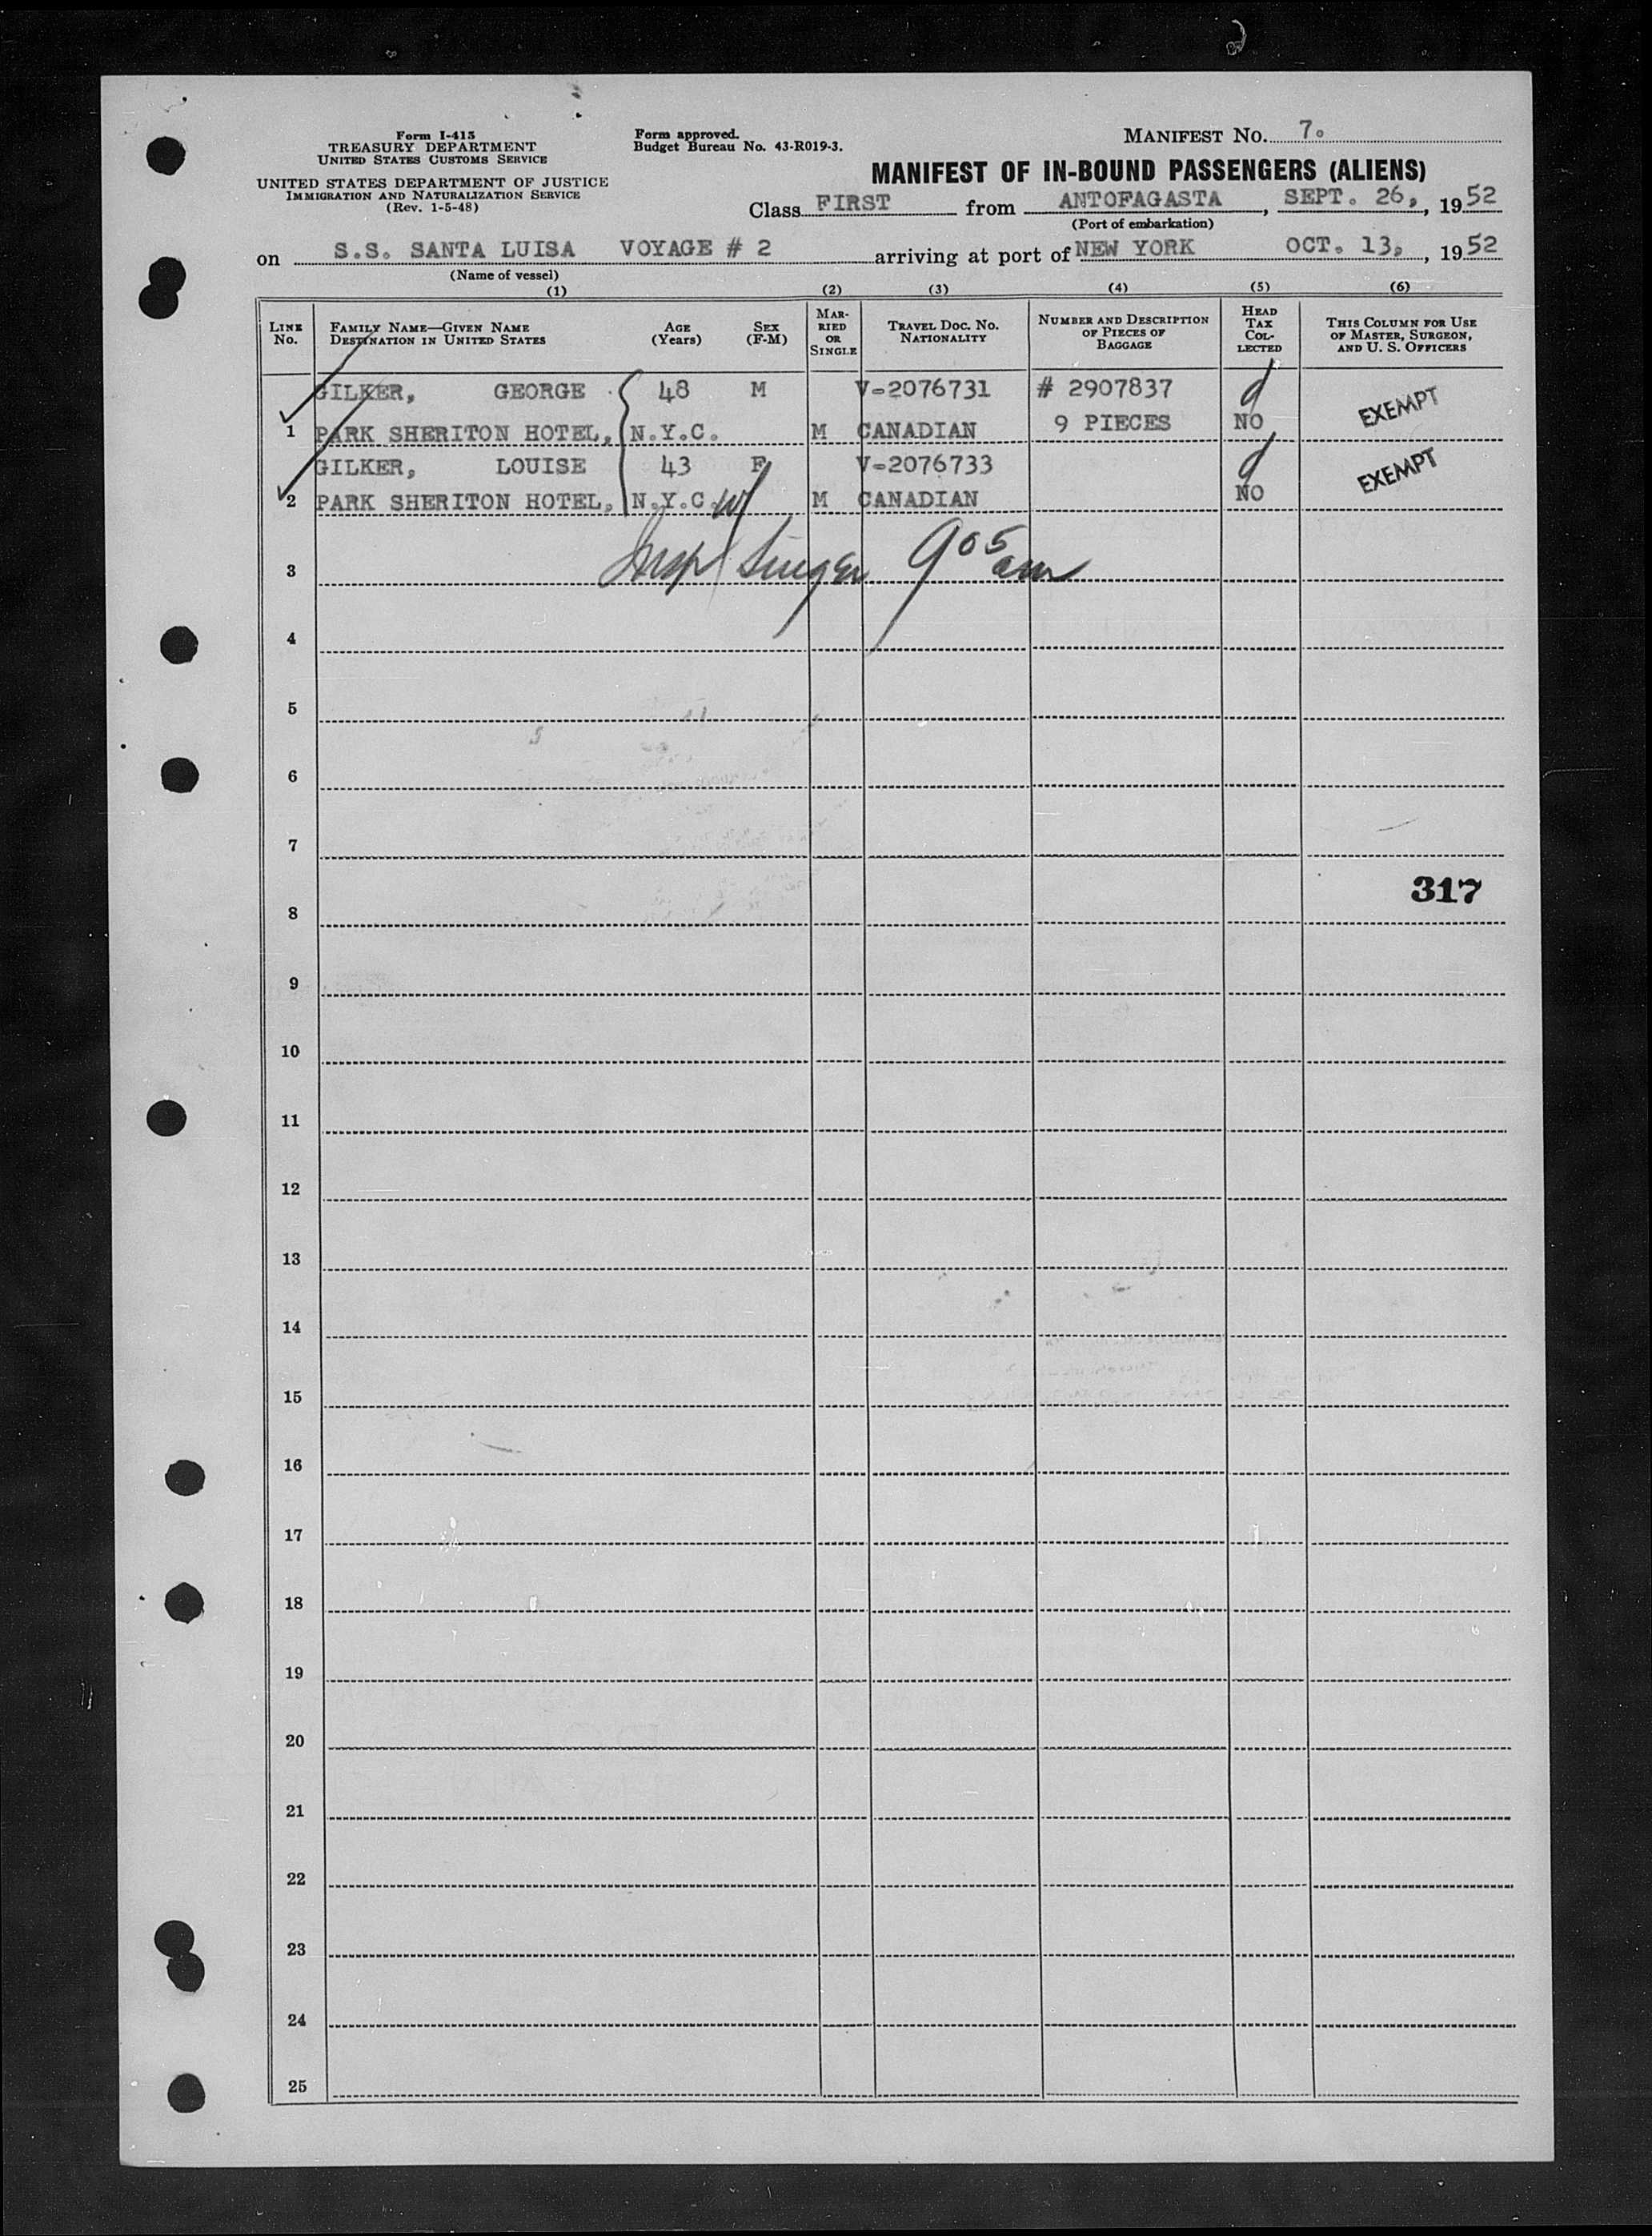 Form I-415
TREASURY DEPARTMENT
UNITED STATES CUSTOMS SERVICE
UNITED STATES DEPARTMENT OF JUSTICE
IMMIGRATION AND NATURALIZATION SERVICE
(Rev. 1-5-48)
Form approved.
Budget Bureau No. 43-R019-3.
MANIFEST NO. 7.
MANIFEST OF IN-BOUND PASSENGERS (ALIENS)
Class FIRST from ANTOFAGASTA, SEPT. 26, 1952
(Port of embarkation)
on S.S. SANTA LUISA VOYAGE # 2 arriving at port of NEW YORK OCT. 13, 1952
(Name of vessel)
(1) (2) (3) (4) (5) (6)
LINE No.
FAMILY NAME—GIVEN NAME
DESTINATION IN UNITED STATES
AGE (Years)
SEX (F-M)
MARRIED OR SINGLE
TRAVEL DOC. NO.
NATIONALITY
NUMBER AND DESCRIPTION OF PIECES OF BAGGAGE
HEAD TAX COLLECTED
THIS COLUMN FOR USE OF MASTER, SURGEON, AND U. S. OFFICERS
GILKER, GEORGE 48 M V-2076731 # 2907837
1 PARK SHERITON HOTEL, N.Y.C. M CANADIAN 9 PIECES NO EXEMPT
GILKER, LOUISE 43 F V-2076733
2 PARK SHERITON HOTEL, N.Y.C. M CANADIAN NO EXEMPT
Insp Singer 9 05 am
3
4
5
6
7
317
8
9
10
11
12
13
14
15
16
17
18
19
20
21
22
23
24
25